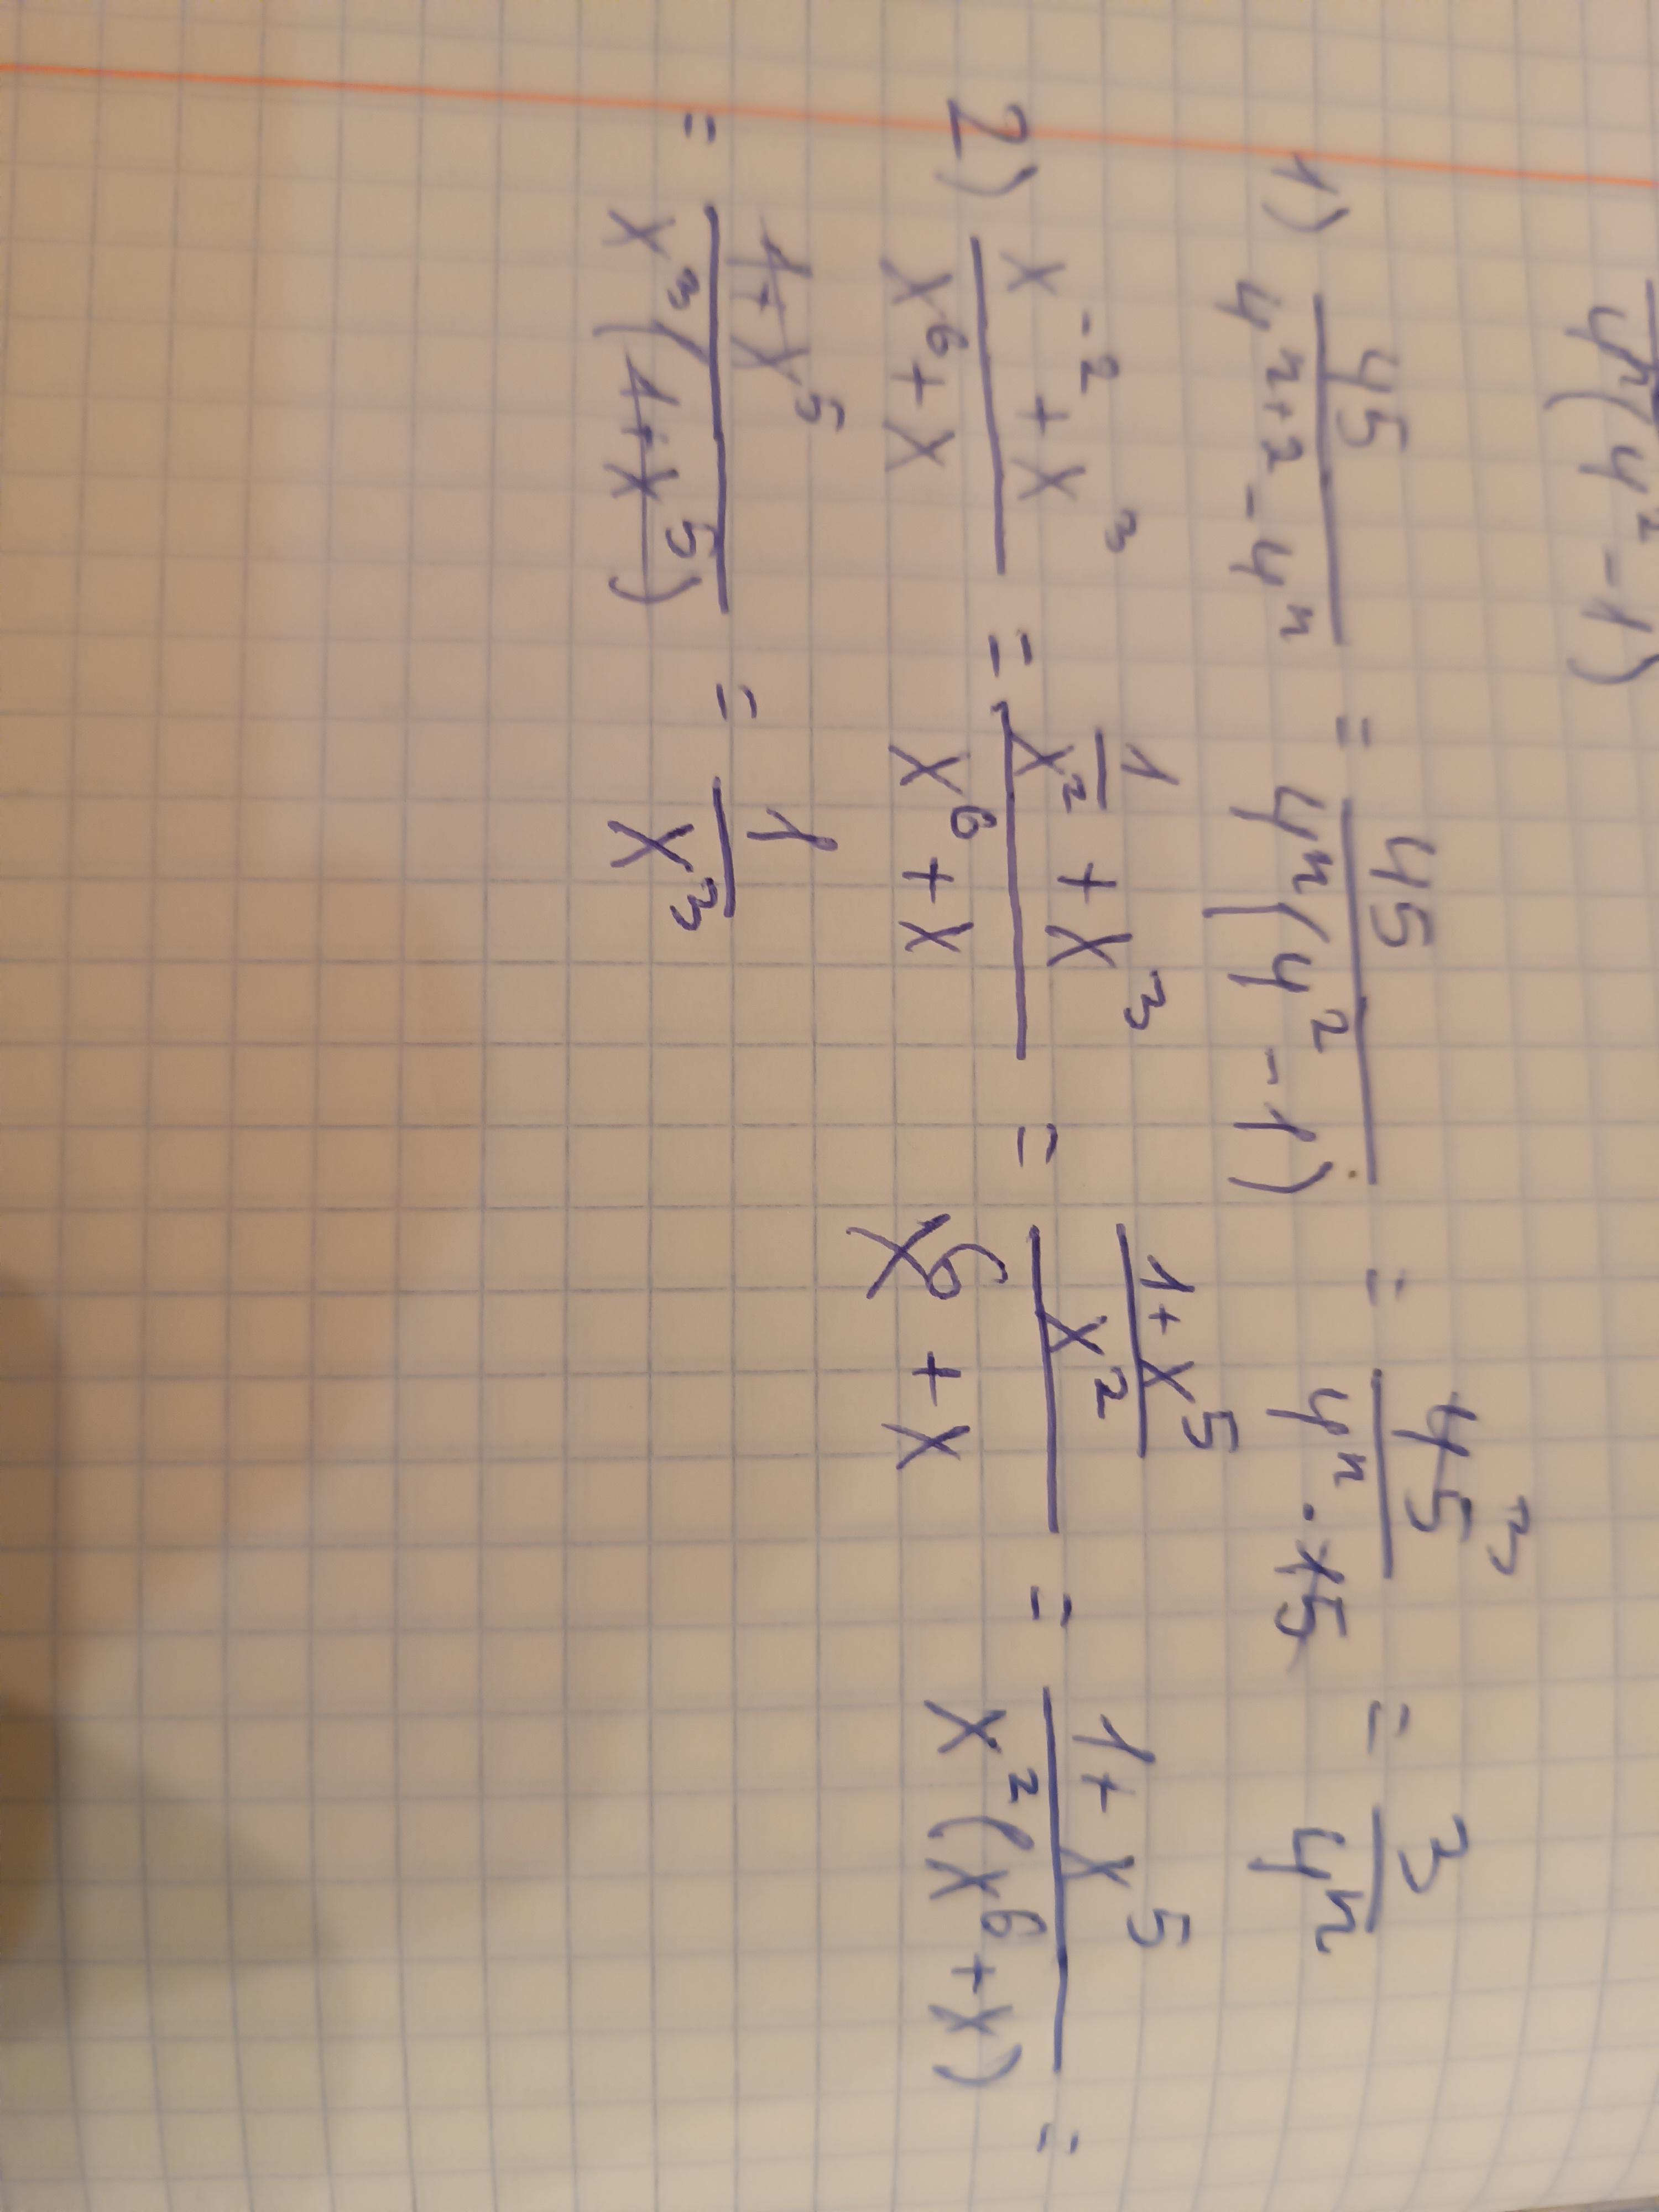 4ⁿ(4² - 1)
1) 45/(4ⁿ⁺² - 4ⁿ) = 45/(4ⁿ(4² - 1)) = 45³/(4ⁿ · 15) = 3/4ⁿ
2) (x⁻² + x³)/(x⁶ + x) = (1/x² + x³)/(x⁶ + x) = ((1 + x⁵)/x²)/(x⁶ + x) = (1 + x⁵)/(x²(x⁶ + x)) =
= (1 + x⁵)/(x³(1 + x⁵)) = 1/x³